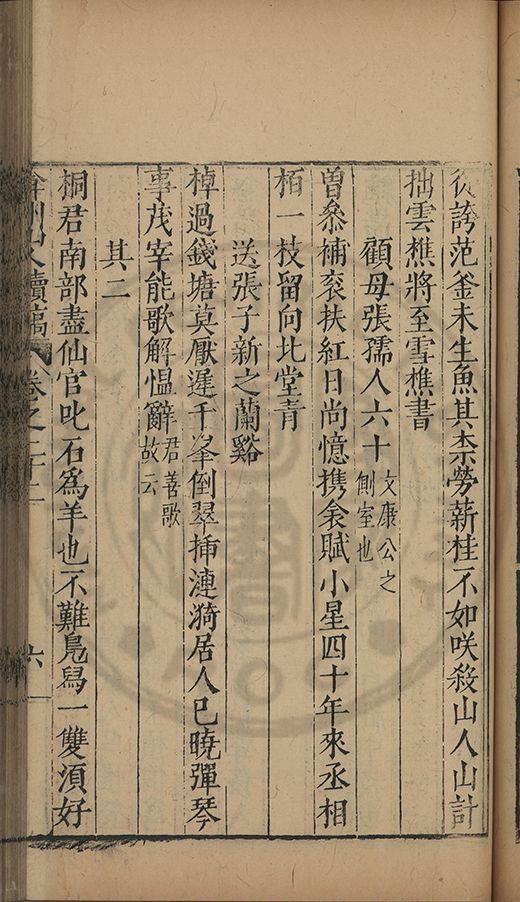 從誇范釜未生魚其柰勞薪桂不如咲殺山人山計
拙雲樵將至雪樵書
顧母張孺人六十文康公之
側室也
曾叅補衮扶紅日尚憶携衾賦小星四十年來丞相
栢一枝留向北堂青
送張子新之蘭谿
棹過錢塘莫厭遲千峯倒翠揷漣漪居人已曉彈琴
事茂宰能歌解慍辭君善歌
故云
其二
桐君南部盡仙官叱石爲羊也不難鳬舄一雙湏好
弇州山人續稿 卷之二十二 六